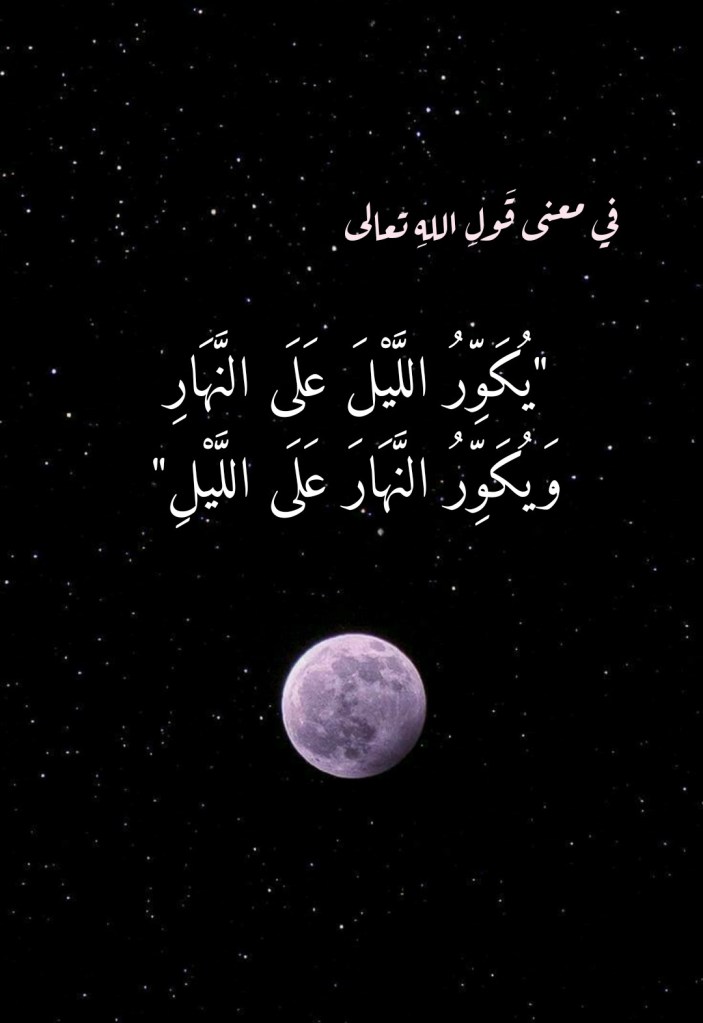 في معنى قَولِ اللهِ تعالى
"يُكَوِّرُ اللَّيْلَ عَلَى النَّهَارِ
وَيُكَوِّرُ النَّهَارَ عَلَى اللَّيْلِ"